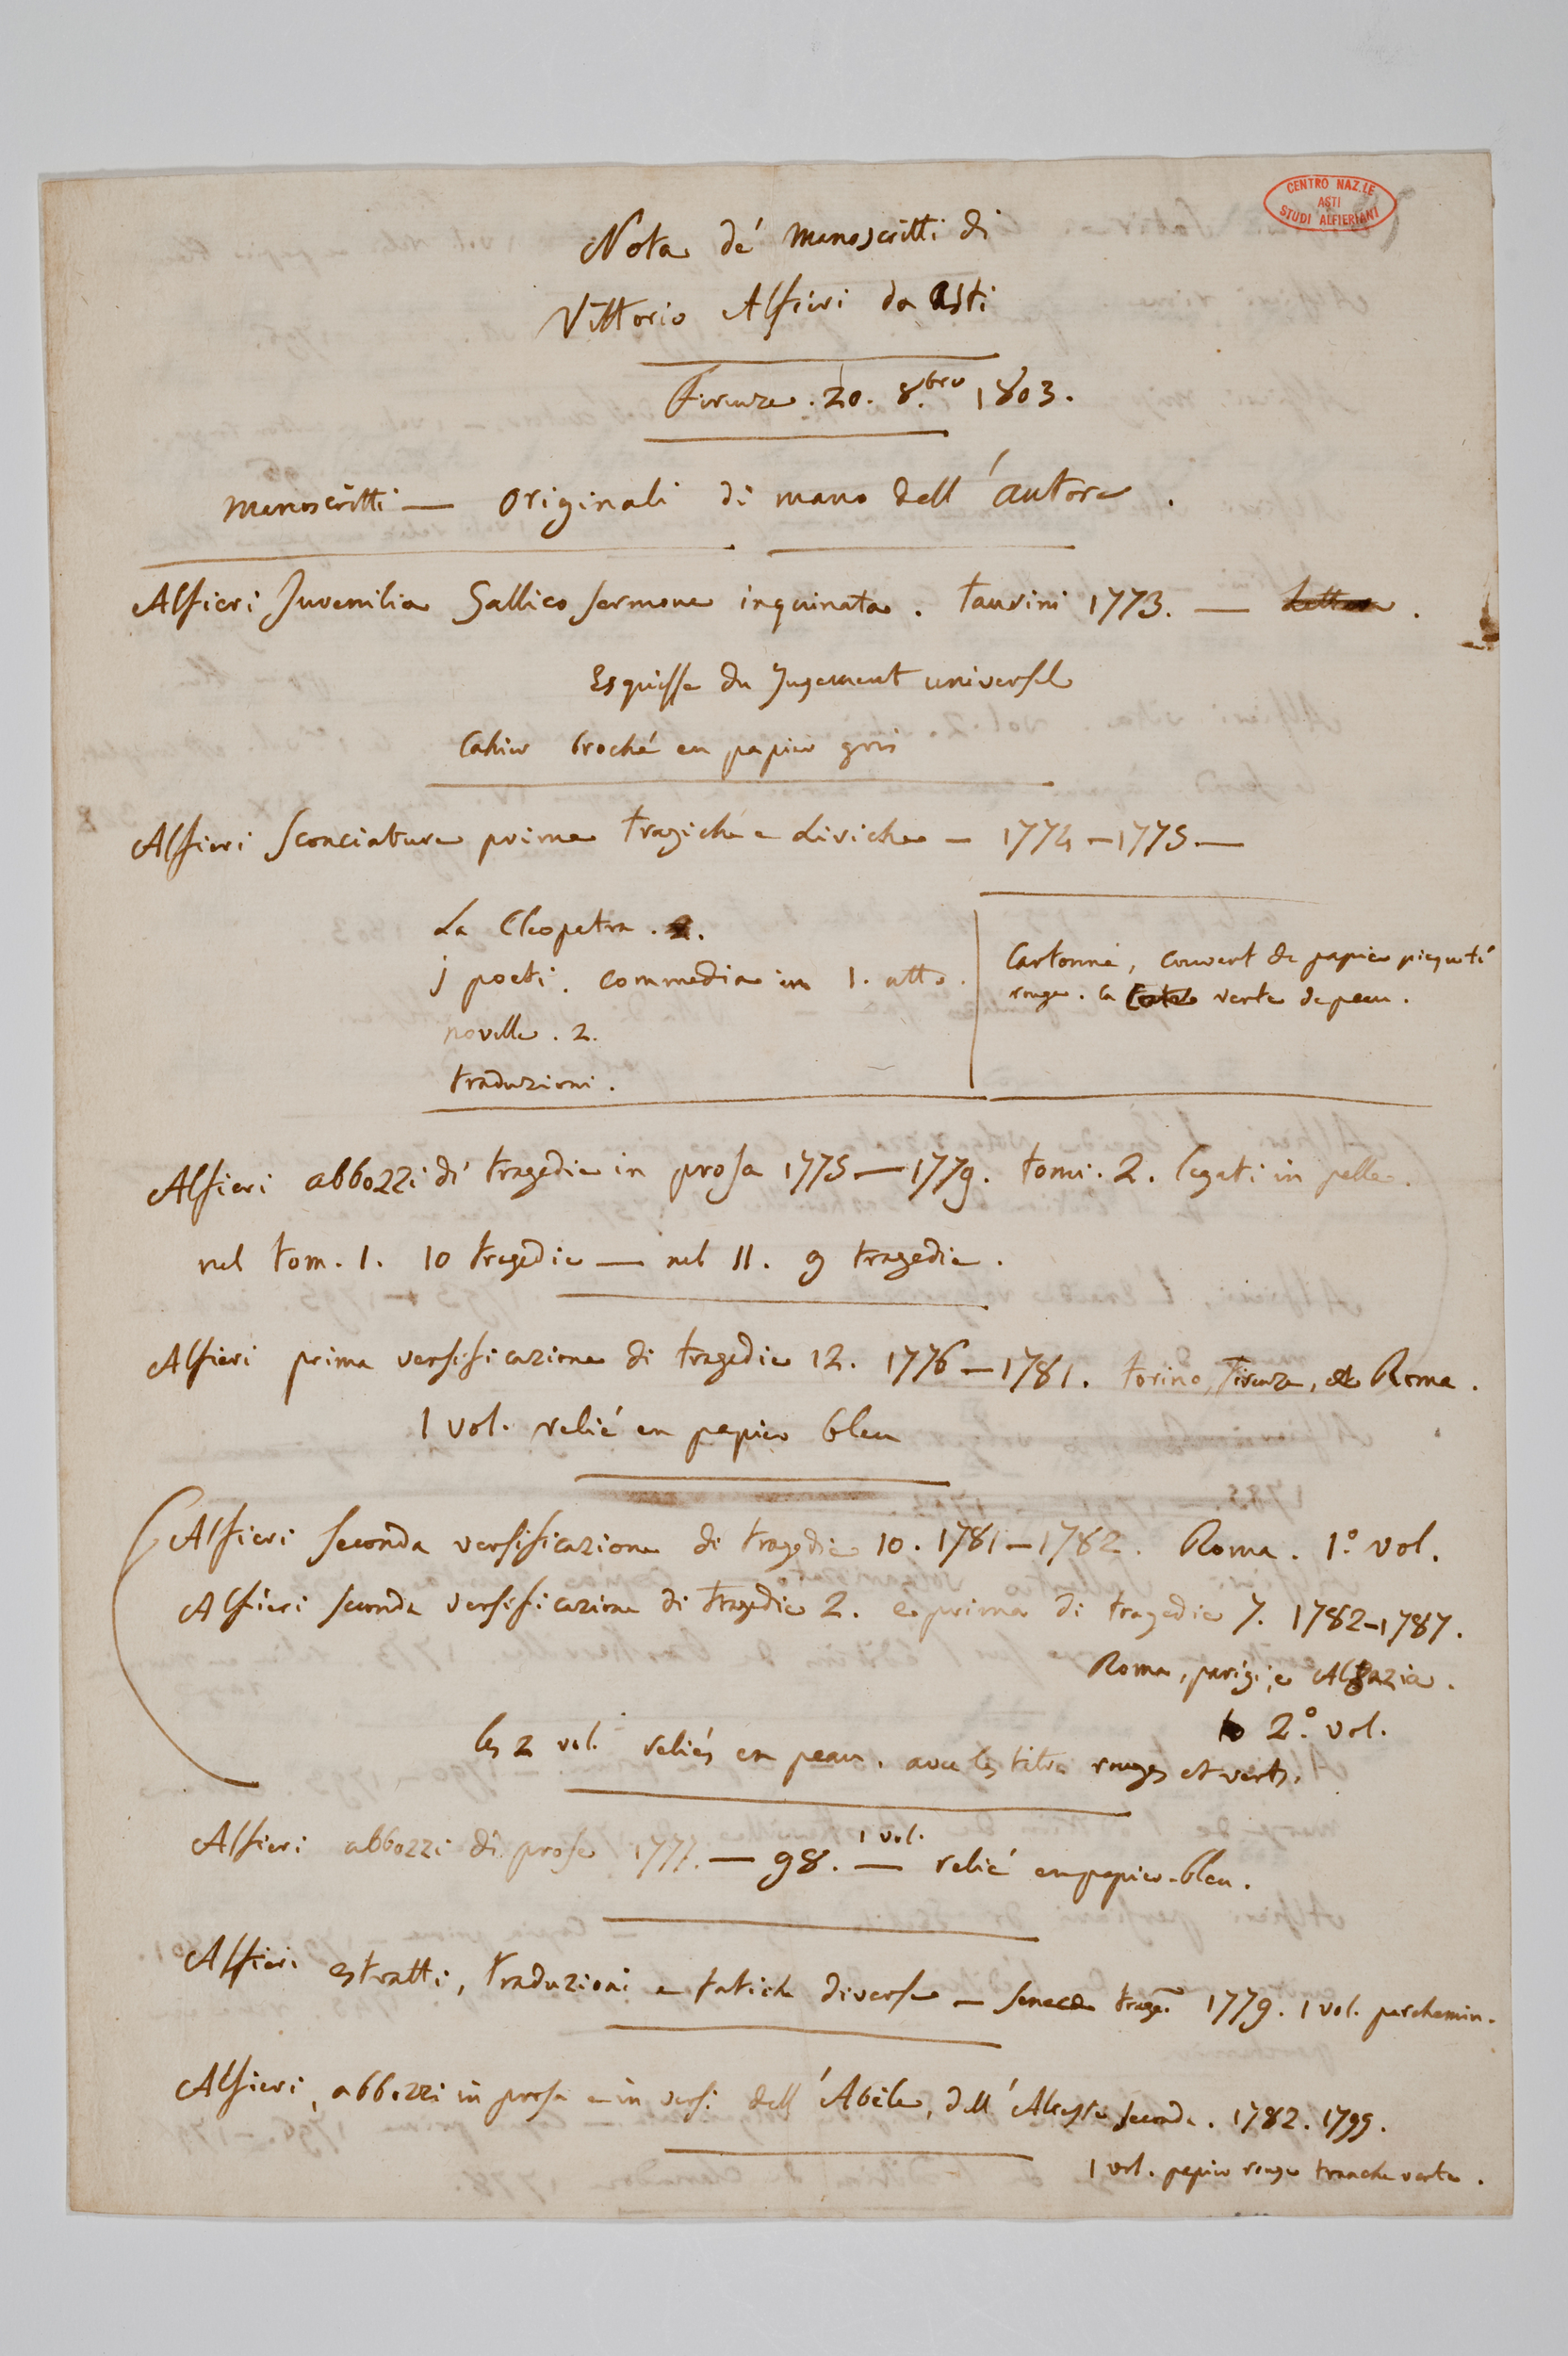 CENTRO NAZ.LE
ASTI
STUDI ALFIERIANI
Nota de' manoscritti di
Vittorio Alfieri da Asti
Firenze . 20. 8.bre 1803.
manoscritti — originali di mano dell'autore .
Alfieri Juvenilia Gallico sermone inquinata . Taurini 1773. —
Esquisse du Jugement universel
Cahier broché en papier gris
Alfieri Sconciature prime tragiche e Liriche — 1774 — 1775 —
La Cleopatra .
j poeti . commedia in 1. atto .
novelle . 2.
traduzioni .
Cartonné, couvert de papier piqueté
rouge . la verte de peau .
Alfieri abbozzi di tragedie in prosa 1775 — 1779. tomi . 2 . legati in pelle .
nel tom . 1 . 10 tragedie — nel II . 9 tragedie .
Alfieri prima versificazione di tragedie 12. 1776 — 1781 . Torino, Firenze, e Roma .
1 vol . relié en papier bleu
Alfieri seconda versificazione di tragedie 10 . 1781 — 1782 . Roma . 1.º vol .
Alfieri seconda versificazione di tragedie 2 . e prima di tragedie 7. 1782 – 1787 .
Roma, parigi, e Alsazia .
2.º vol .
les 2 vol . reliés en peau . avec les titres rouges et verts .
Alfieri abbozzi di prose 1777. — 98 . — 1 vol . relié en papier bleu .
Alfieri estratti, traduzioni e fatiche diverse — Seneca trage. 1779 . 1 vol . parchemin .
Alfieri, abbozzi in prosa e in versi dell'Abele, dell'Alceste seconda . 1782 . 1799 .
1 vol . papier rouge tranche verte .